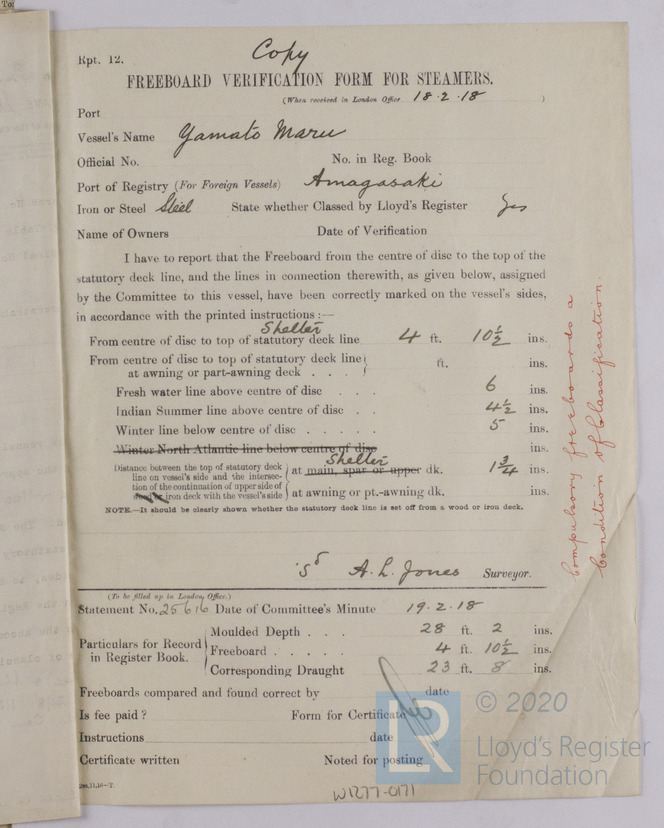 To:
Rpt. 12.
Copy
FREEBOARD VERIFICATION FORM FOR STEAMERS.
(When received in London Office 18.2.18 )
Port
Vessel's Name Yamato Maru
Official No. No. in Reg. Book
Port of Registry (For Foreign Vessels) Amagasaki
Iron or Steel Steel State whether Classed by Lloyd's Register Yes
Name of Owners Date of Verification
I have to report that the Freeboard from the centre of disc to the top of the
statutory deck line, and the lines in connection therewith, as given below, assigned
by the Committee to this vessel, have been correctly marked on the vessel's sides,
in accordance with the printed instructions :—
Shelter
From centre of disc to top of statutory deck line 4 ft. 10½ ins.
From centre of disc to top of statutory deck line
at awning or part-awning deck . . . ft. ins.
Fresh water line above centre of disc . . . 6 ins.
Indian Summer line above centre of disc . . 4½ ins.
Winter line below centre of disc . . . . . 5 ins.
Winter North Atlantic line below centre of disc ins.
Shelter
Distance between the top of statutory deck
line on vessel's side and the intersec-
tion of the continuation of upper side of
wood or iron deck with the vessel's side
at main, spar or upper dk. 1¾ ins.
at awning or pt.-awning dk. ins.
NOTE.—It should be clearly shown whether the statutory deck line is set off from a wood or iron deck.
Compulsory freeboards a
Condition of Classification.
'Sd A. L. Jones Surveyor.
(To be filled up in London Office.)
Statement No. 25616 Date of Committee's Minute 19.2.18
Particulars for Record
in Register Book.
Moulded Depth . . . 28 ft. 2 ins.
Freeboard . . . . . 4 ft. 10½ ins.
Corresponding Draught 23 ft. 8 ins.
Freeboards compared and found correct by date
Is fee paid ? Form for Certificate
Instructions date
Certificate written Noted for posting
LR
© 2020
Lloyd's Register
Foundation
W1277-0171